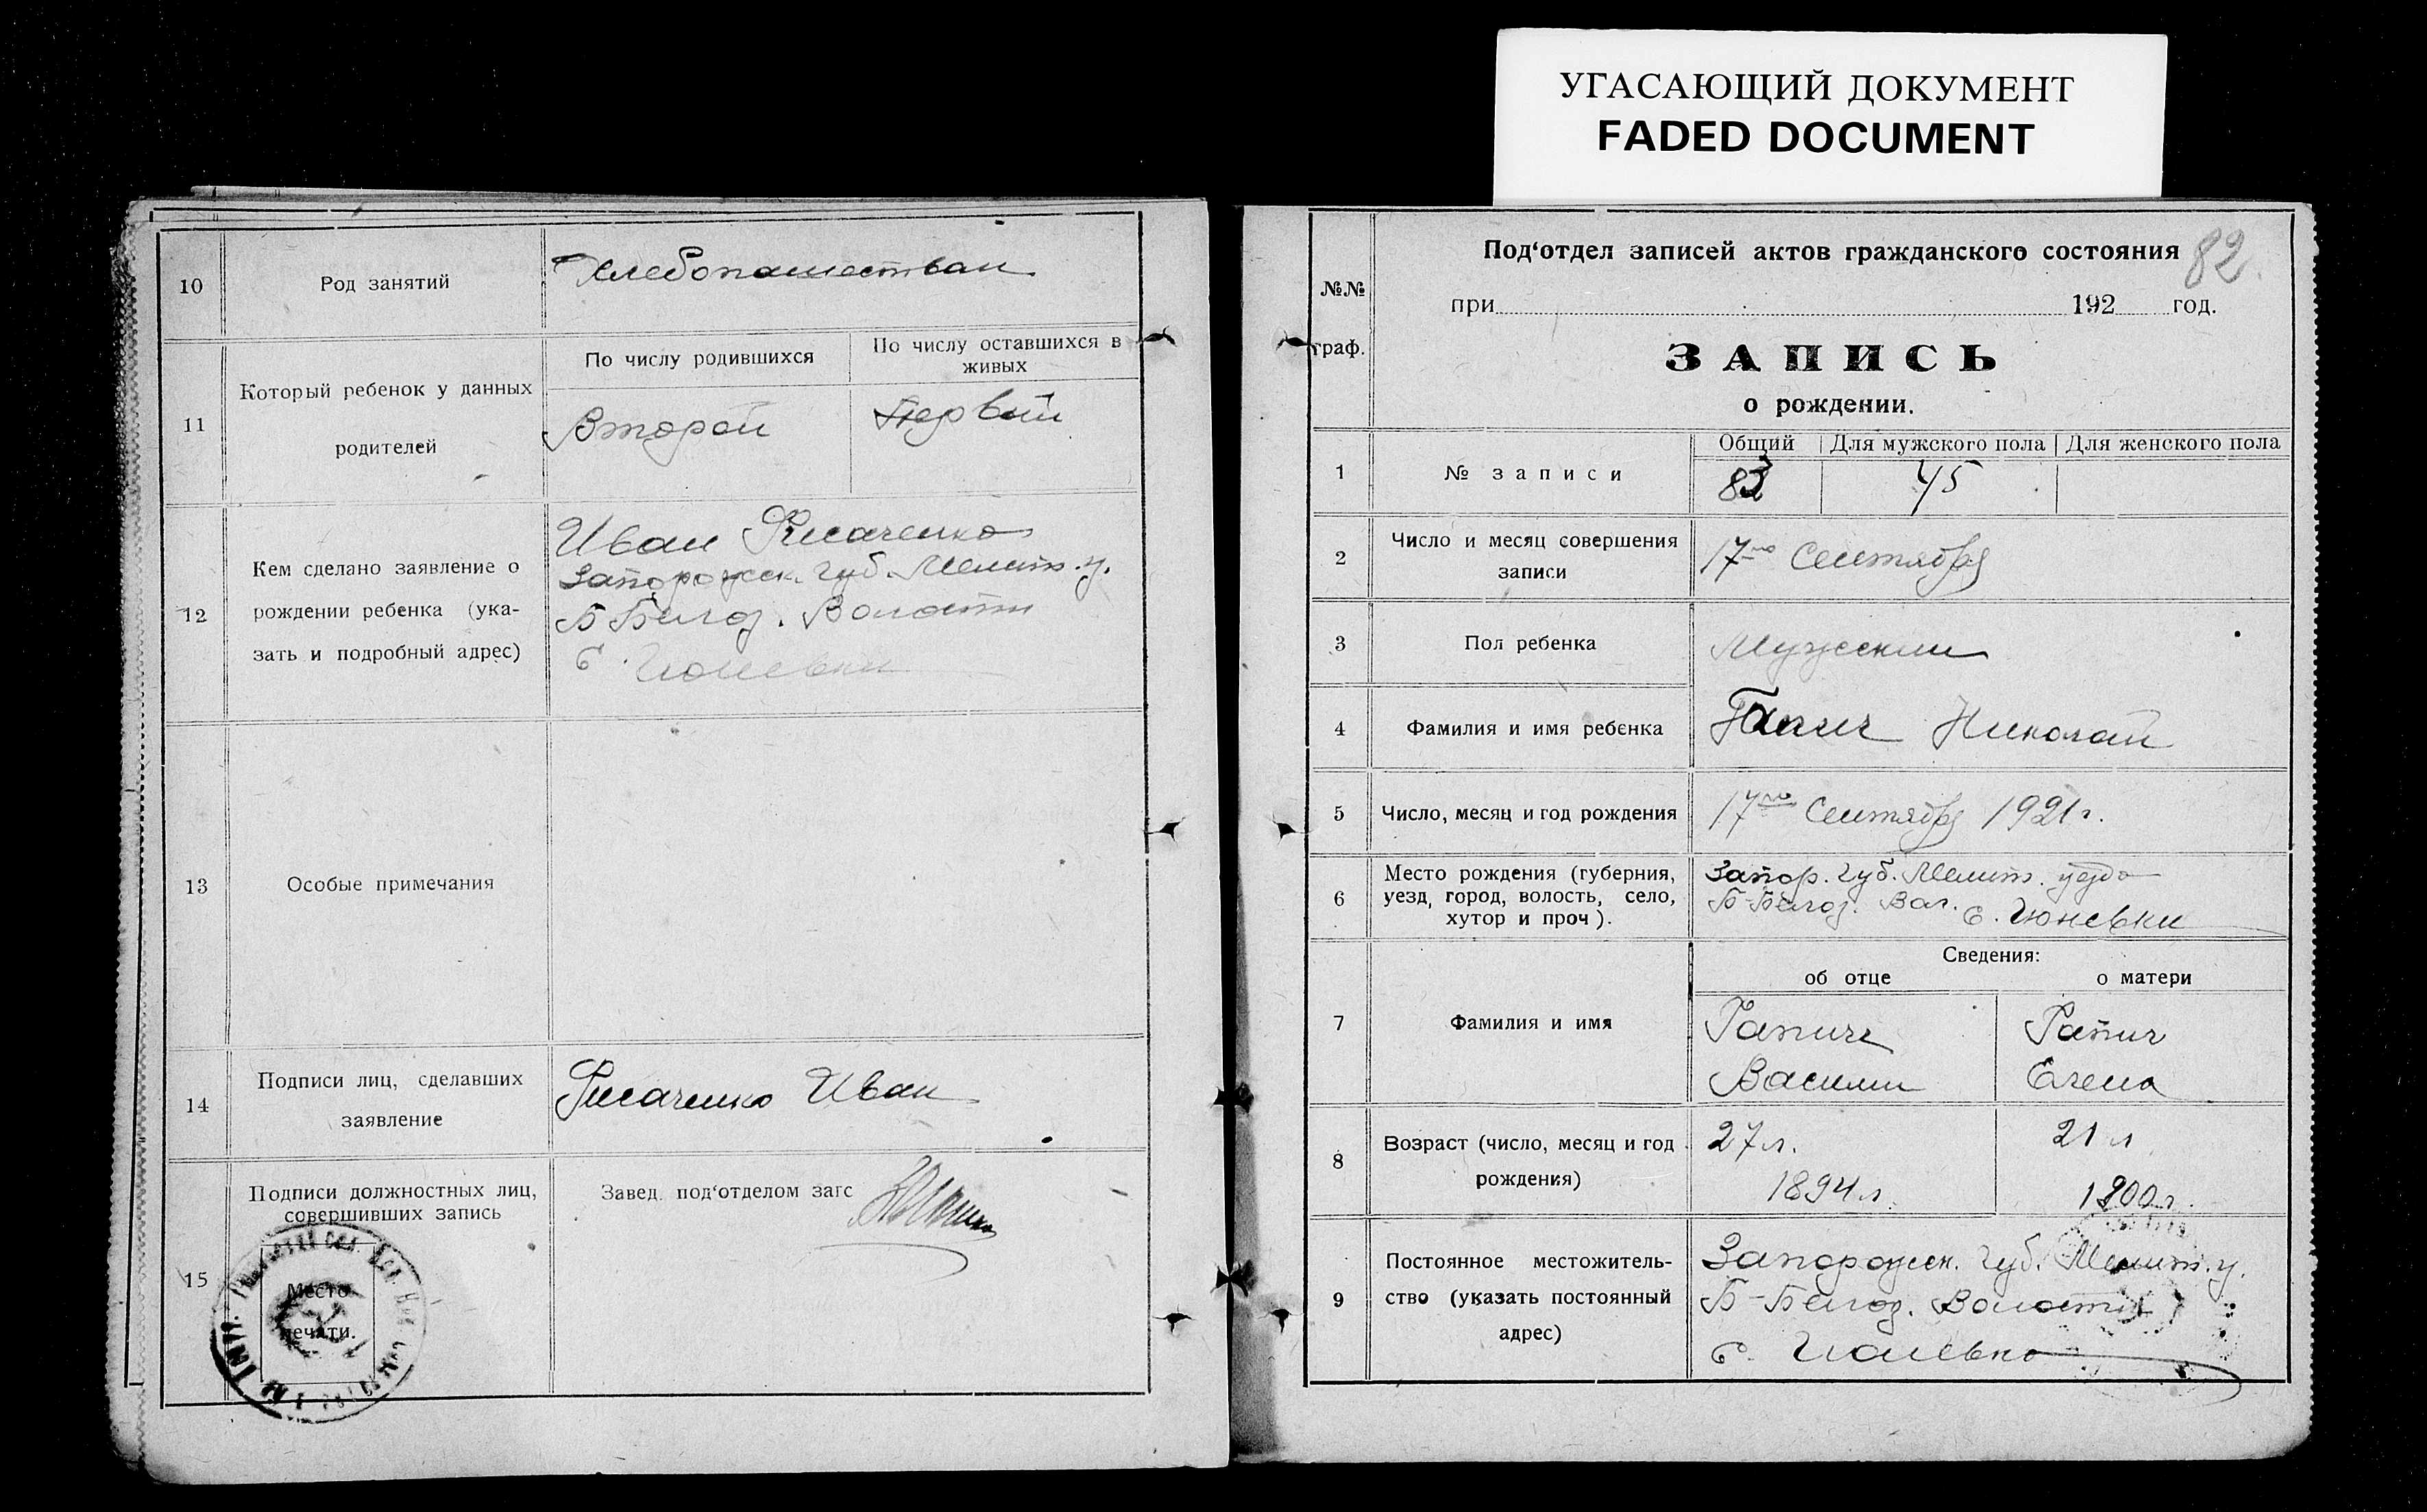 УГАСАЮЩИЙ ДОКУМЕНТ
FADED DOCUMENT
10
Род занятий
Хлебопашеством
11
Который ребенок у данных
родителей
По числу родившихся
По числу оставшихся в
живых
Второй
Первый
12
Кем сделано заявление о
рождении ребенка (ука-
зать и подробный адрес)
Иван
Запорожск. губ. Мелит. у.
Б Белоз. Волости
с. Гюневки
13
Особые примечания
14
Подписи лиц, сделавших
заявление
Иван
15
Подписи должностных лиц,
совершивших запись
Завед. под‘отделом загс
Место
печати.
№№
граф.
Под‘отдел записей актов гражданского состояния
82
при 192 год.
ЗАПИСЬ
о рождении.
1
№ записи
Общий
Для мужского пола
Для женского пола
83
45
2
Число и месяц совершения
записи
17го Сентября
3
Пол ребенка
Мужский
4
Фамилия и имя ребенка
Гапич Николай
5
Число, месяц и год рождения
17го Сентября 1921 г.
6
Место рождения (губерния,
уезд, город, волость, село,
хутор и проч).
Запор. губ. Мелит. уезда
Б-Белоз. Вол. с. Гюневки
Сведения:
об отце
о матери
7
Фамилия и имя
Гапич
Василий
Гапич
Елена
8
Возраст (число, месяц и год
рождения)
27 л.
1894 г.
21 л
1900 г.
9
Постоянное местожитель-
ство (указать постоянный
адрес)
Запорожск. губ. Мелит. у.
Б-Белоз. Волости
с. Гюневка